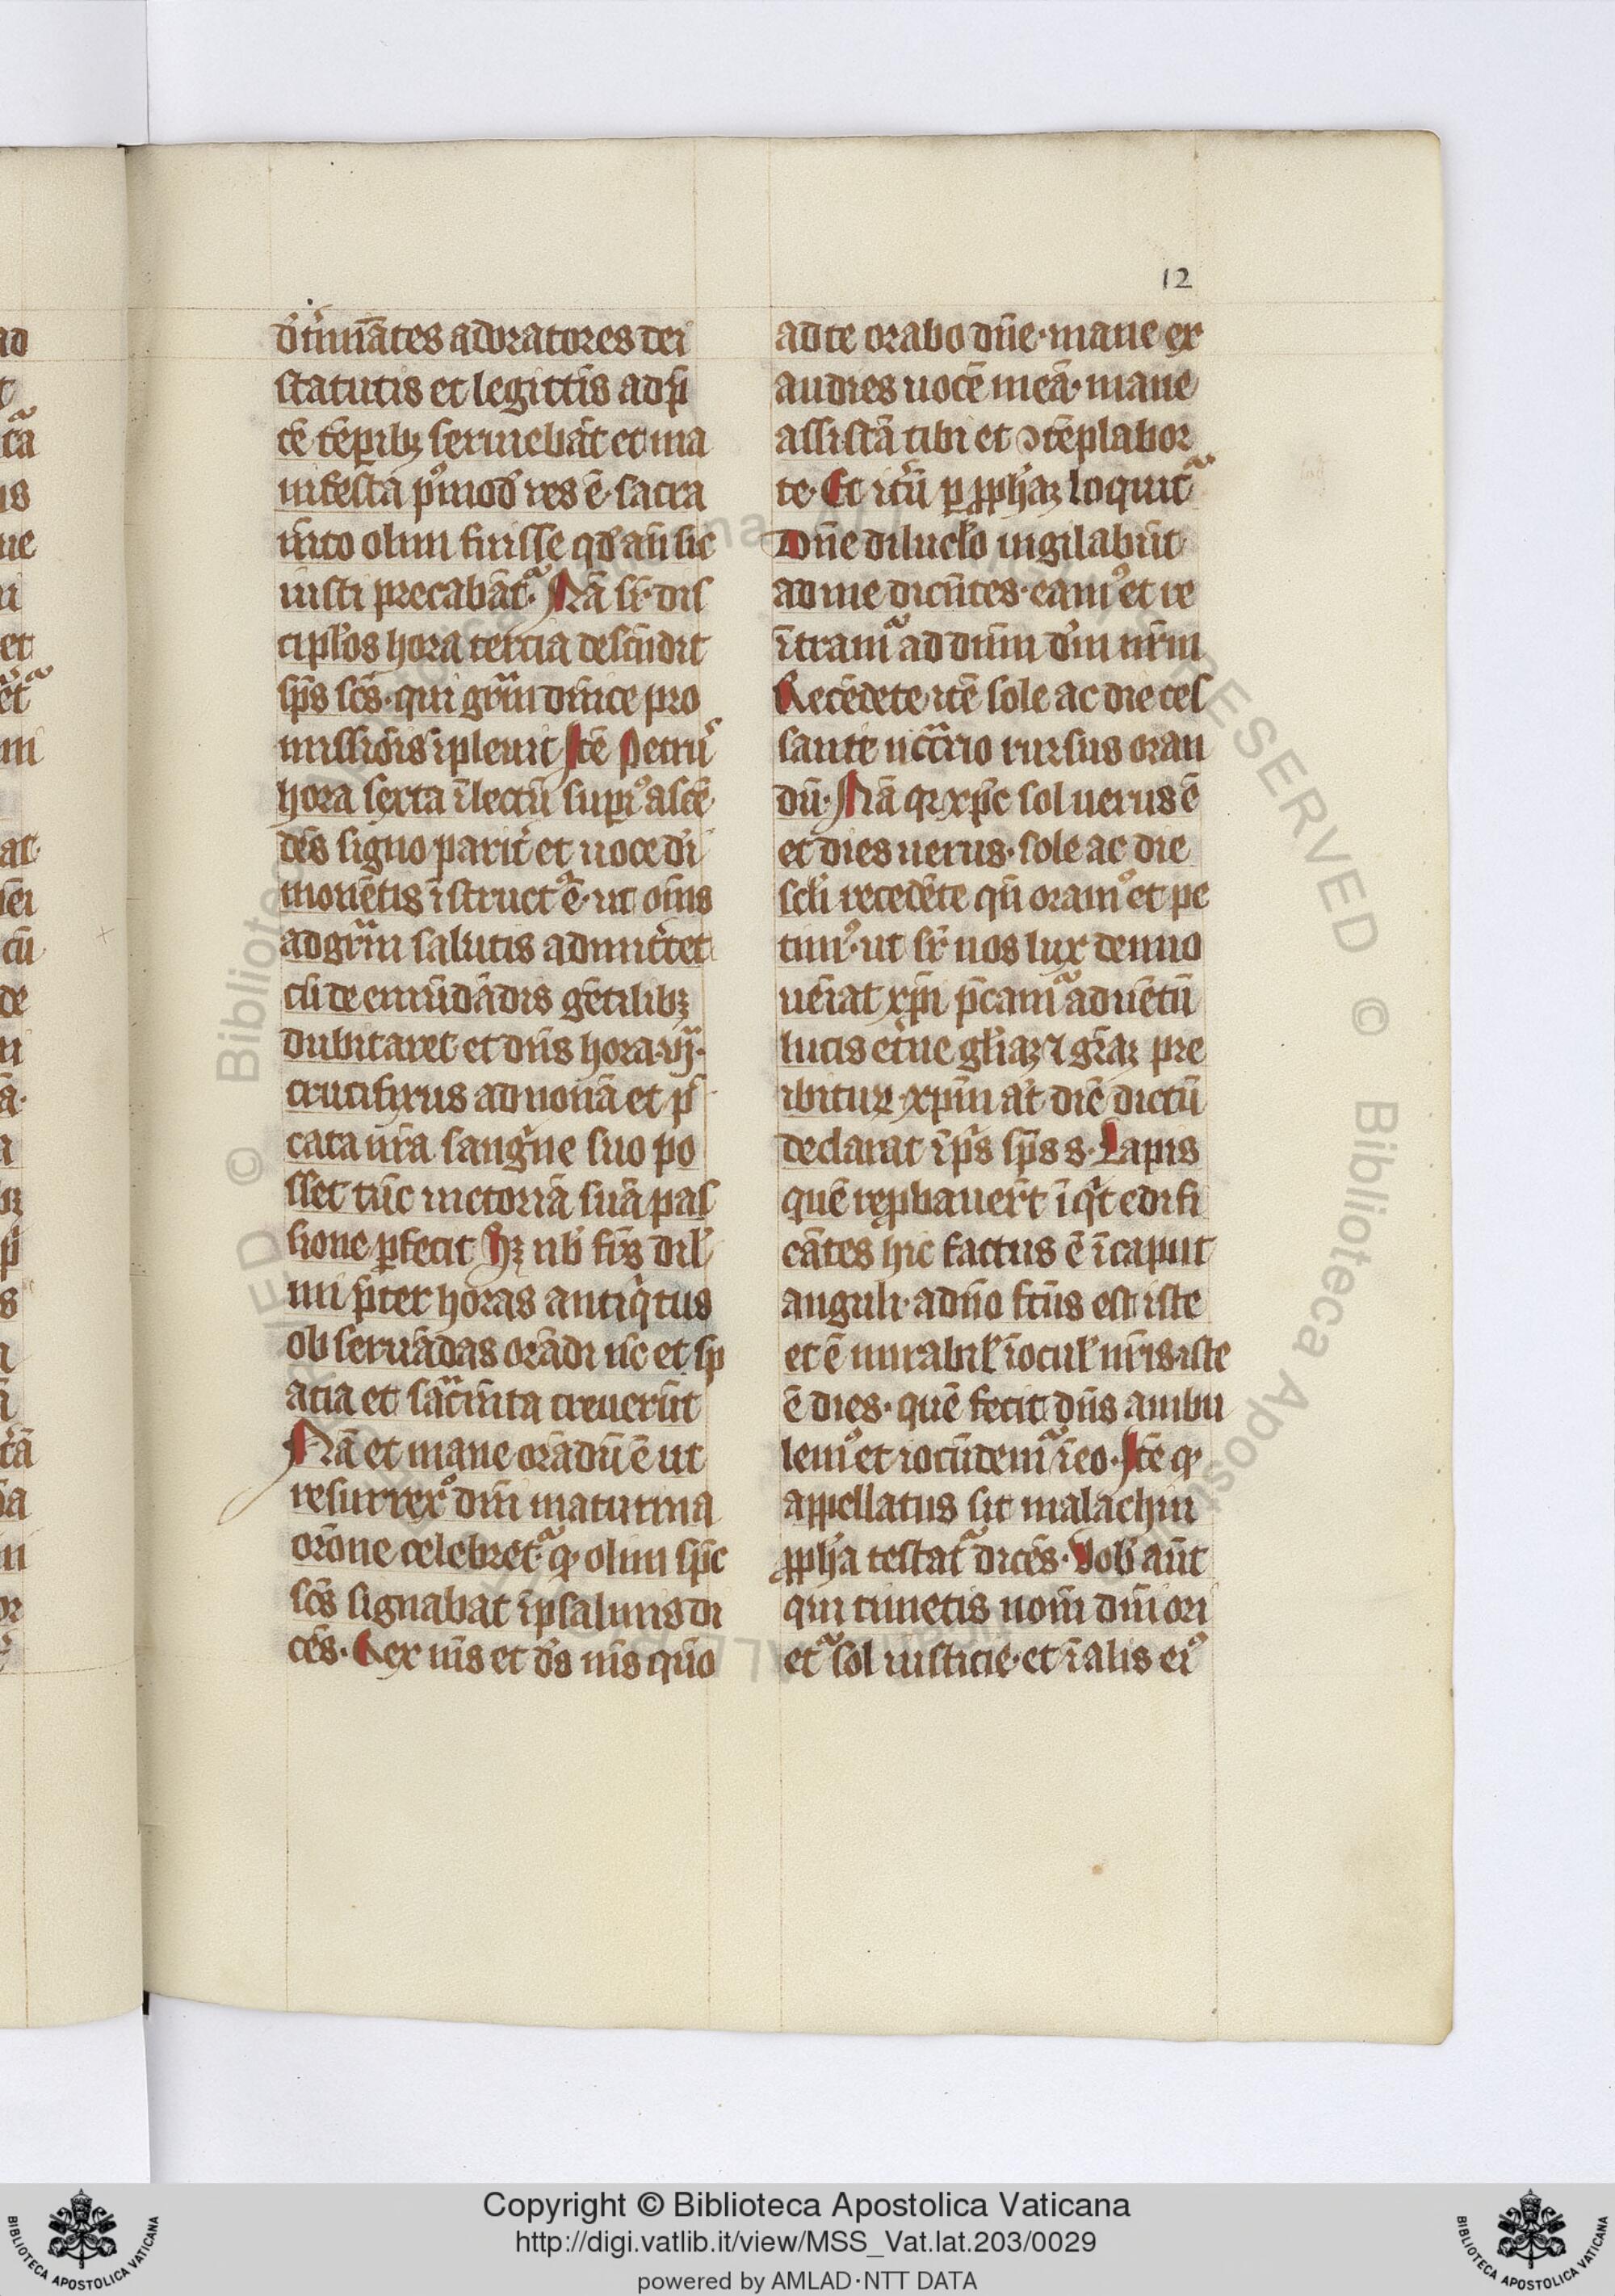 12
dt̾mīātes adoratores dei
statutis et legittīs ad p̄
cē tēꝑibꝫ serviebāt et ma
nifesta pͥmod̾ res ē. sacra
m̄to olim fuisse qd̾ an̄ sic
iusti precabāt᷑. Nā sr̄ dis
cipl̾os hora tercia descēdit
sp̄s sc̄s. qui gr̄am dn̄ice pro
missiōis īpleuit Itē Petrus
hora sexta ī lectū suꝑiꝰ ascē
dēs signo parit̾ et uoce di̾
monētis īstructꝰ ē. ut oīns
ad gr̄am salutis admitt̾et
cū de emūdādis gētilibꝫ
dubitaret et dn̄s hora .vj.
crucifixus ad nonā et p̄
cata nr̄a sangͥne suo po
sset tūc uictoriā suā pas
sione ꝑfecit Hꝫ nb̾ fr̄s dil̾
mi p̄ter horas antiqͥtus
obseruādas orādi nc̄ et sp
acia et sac̄m̄ta creuerūt
Nā et mane orādū ē ut
resurrexͦ dn̄i matutina
orōne celebret᷑. qꝫ olim sp̄c
sc̄s signabat ī psalmis di
cēs. Rex m̄s et d̾s m̄s qm̄o
ad te orabo dn̄e. mane ex
audies uocē meā. mane
assistā tibi et ꝯtēplabor
te. Et it̾ū ꝑ ꝓph̾aꝫ loquit᷑
Dn̄e diluc̾lo uigilabūt
ad me dicētes. eamꝰ et re
ītram᷑ ad dn̄m d̾m nr̄m
Recēdete itē sole ac die ces
sante nc̄c̄rio rursus oran
dū. Nā qꝛ xp̄c sol uerus ē
et dies uerus. sole ac die
scl̾i recedēte qn̄ oramꝰ et pe
timꝰ. ut sr̄ nos lux denuo
uēiat xp̄i p̄cam᷑ aduētū
lucis et̾ne gl̾iaꝫ ⁊ gr̄aꝫ pre
ibituꝛ. xp̄m at̾ diē dictū
declarat ī ps̄ sp̄s s. Lapis
quē rep̱bauer̄t īqͥt edifi
cātes hic factus ē ī caput
anguli. a dn̄o fc̄us est iste
et ē mirabil̾ ī ocul̾ nr̄is. iste
ē dies. quē fecit dn̄s ambu
lemꝰ et iocūdem᷑ ī eo. Itē qꝫ
appellatus sit malachiu
ꝓph̾a testat᷑ dicēs. Vob̾ aūt
qui timetis nom̄ dn̄i ori
et᷑ sol iusticie. et ī alis eiꝰ
Copyright © Biblioteca Apostolica Vaticana
http://digi.vatlib.it/view/MSS_Vat.lat.203/0029
powered by AMLAD·NTT DATA